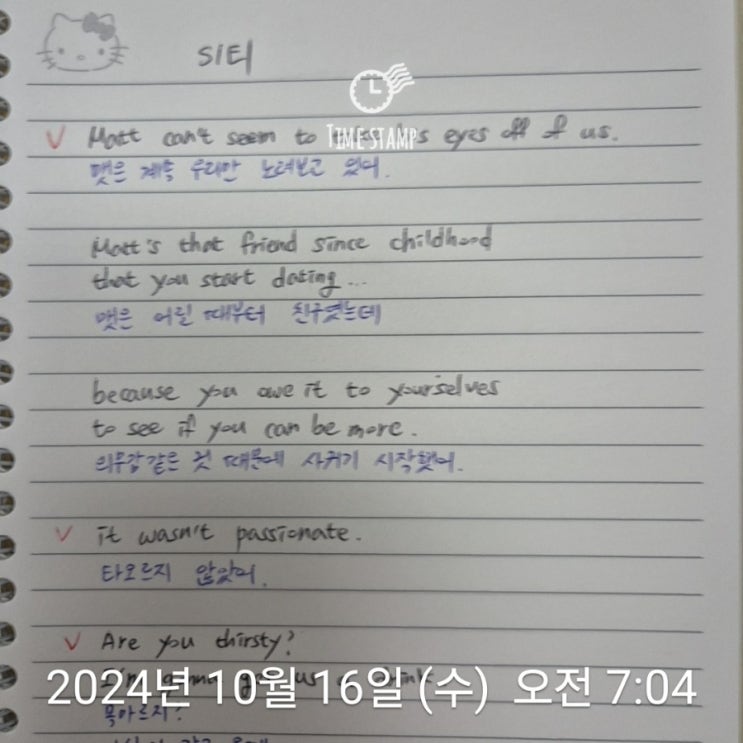 시터
TIMESTAMP
Matt can't seem to eyes off of us.
맷은 계속 우리만 노려보고 있어.
Matt's that friend since childhood
that you start dating...
맷은 어릴 때부터 친구였는데
because you owe it to yourselves
to see if you can be more.
의무감같은 것 때문에 사귀기 시작했어.
it wasn't passionate.
타오르지 않았어.
Are you thirsty?
2024년 10월 16일 (수) 오전 7:04
목마르지?